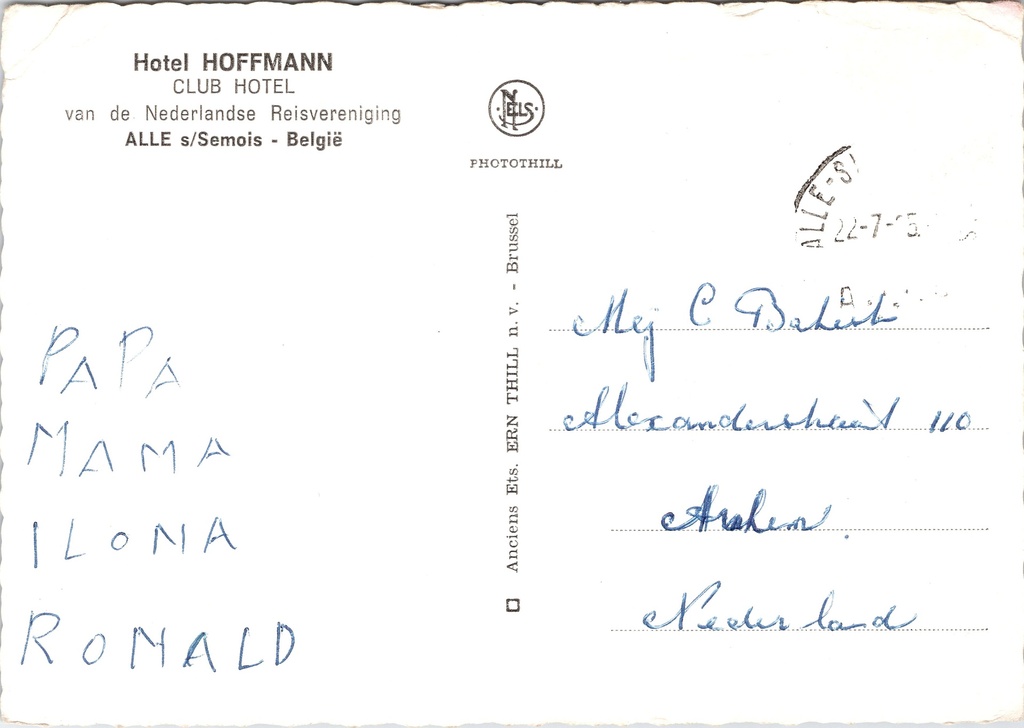 Hotel HOFFMANN
CLUB HOTEL
van de Nederlandse Reisvereniging
ALLE s/Semois - België
NELS
PHOTOTHILL
ALLE-S
22-7-
Anciens Ets. ERN THILL n. v. - Brussel
PAPA
MAMA
ILONA
RONALD
Mej C
Alexanderstraat 110
Arnhem.
Nederland